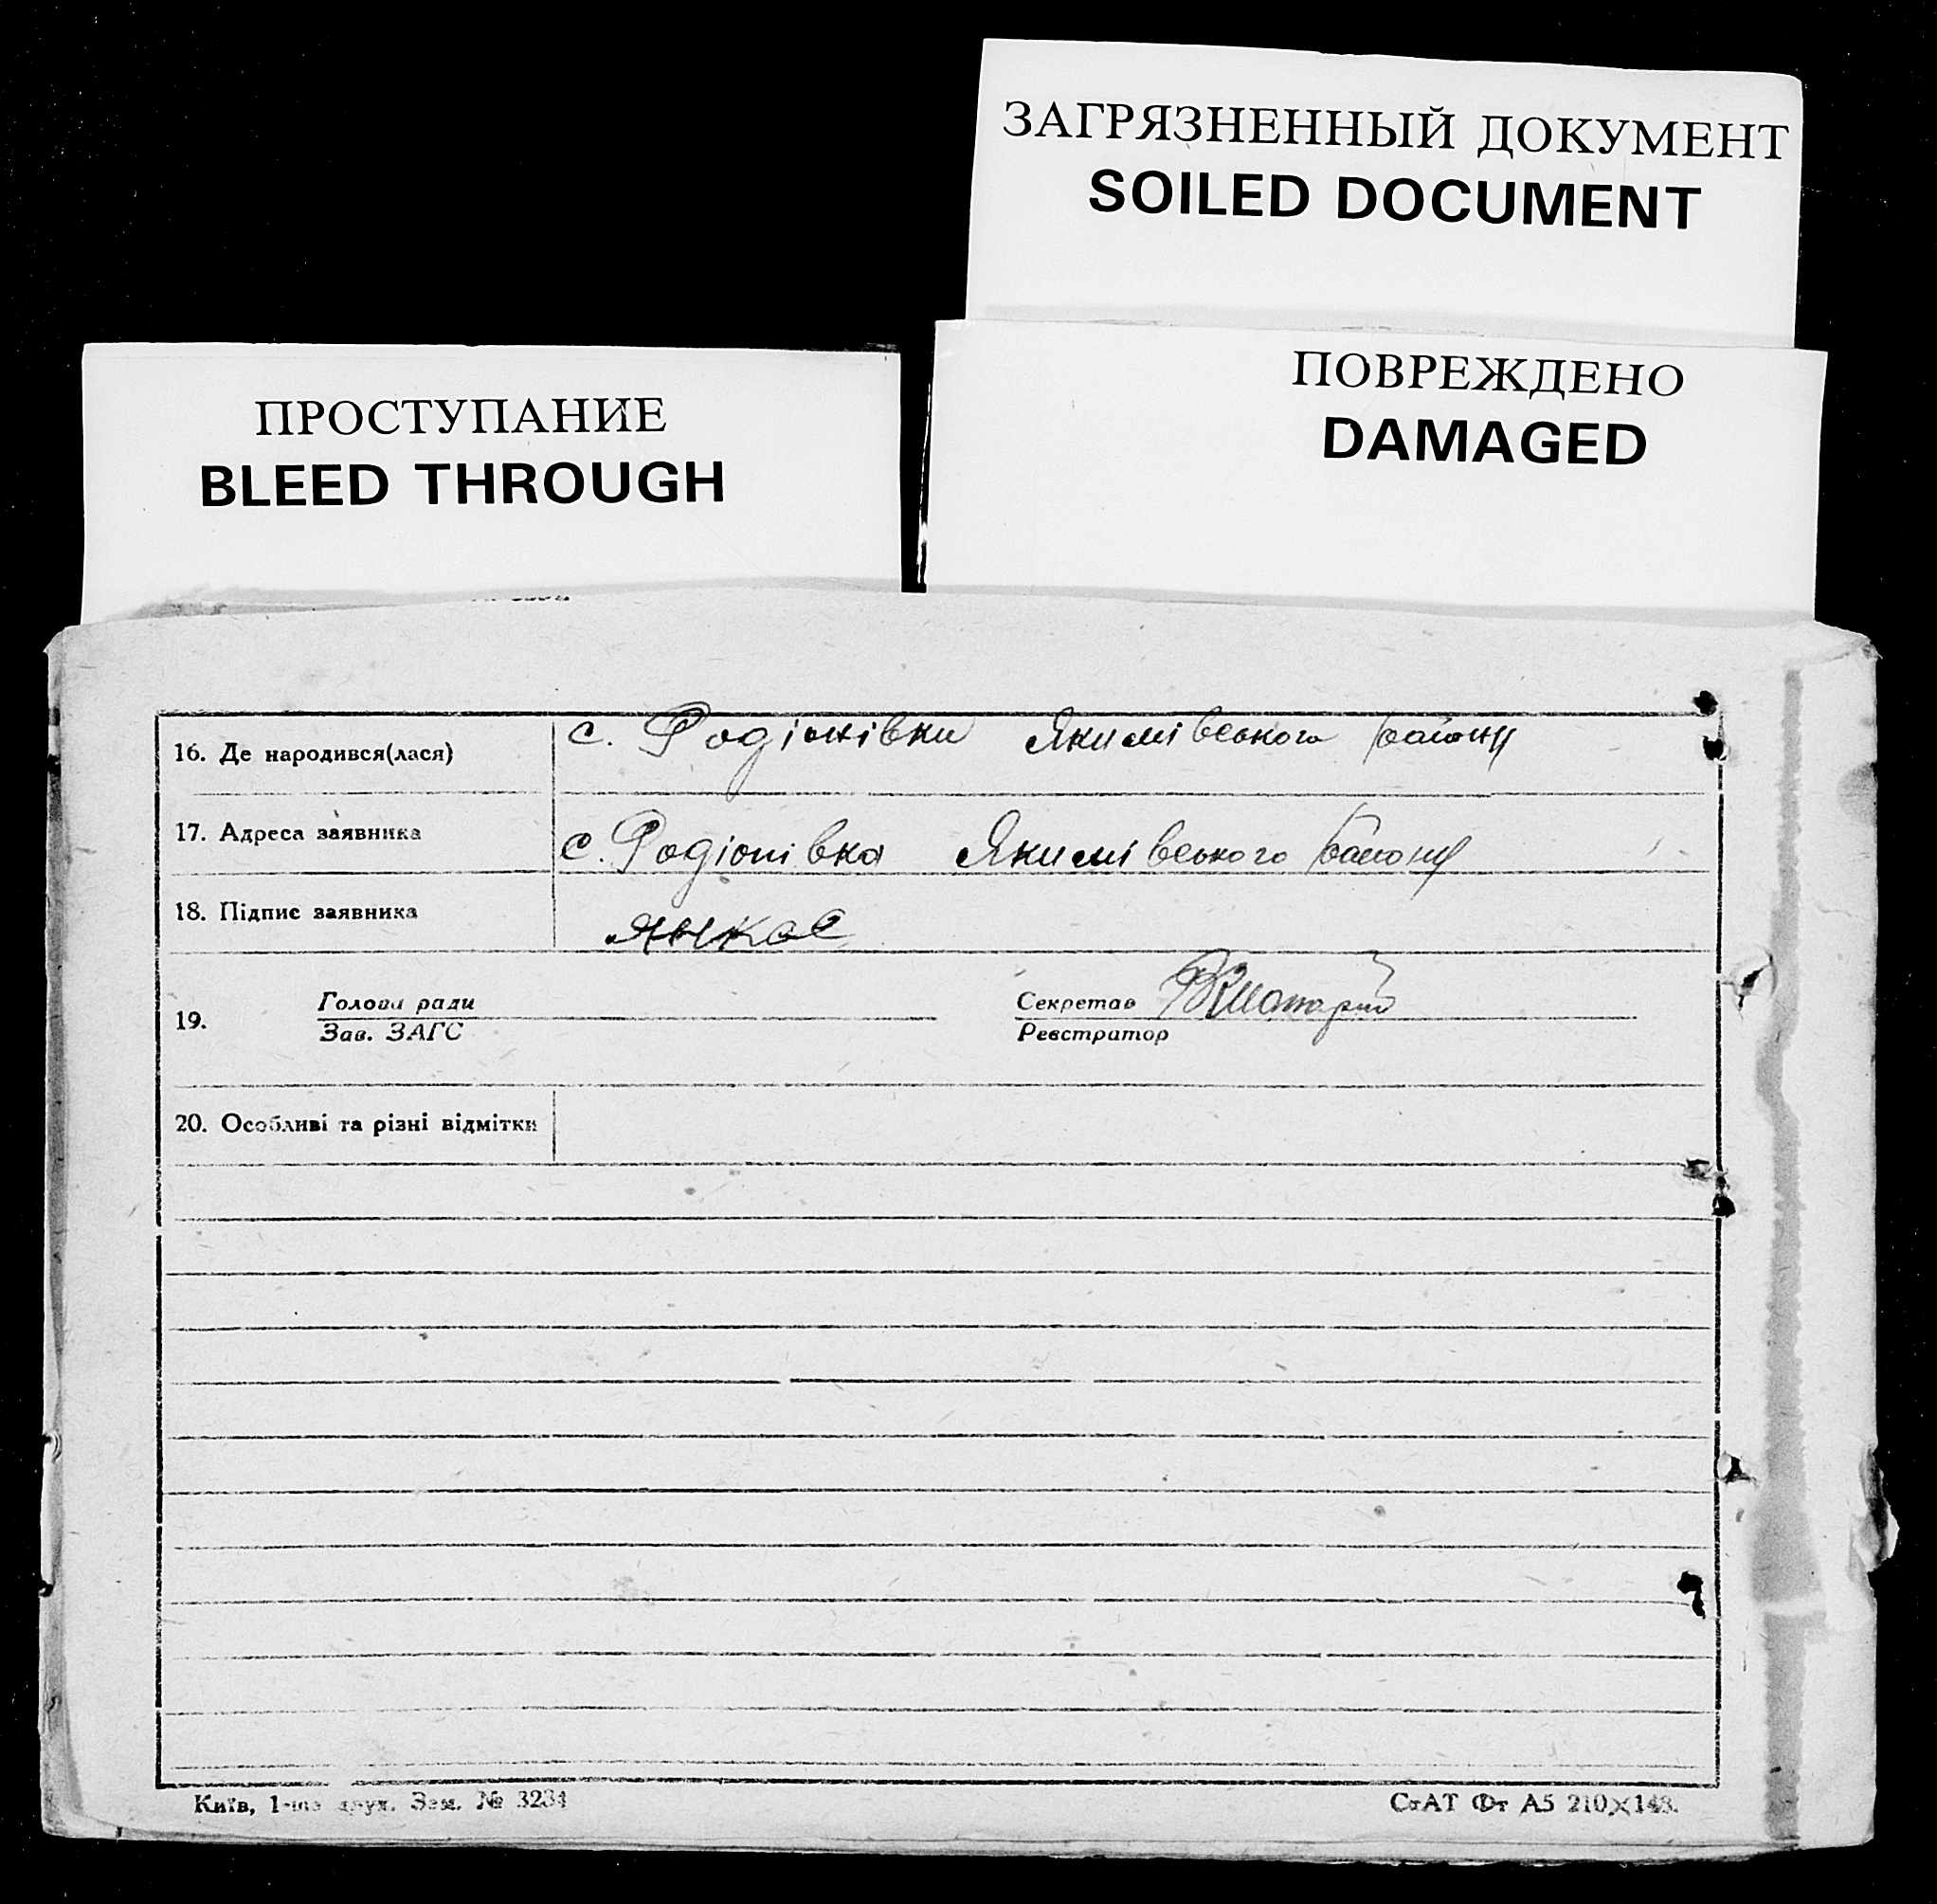 ЗАГРЯЗНЕННЫЙ ДОКУМЕНТ
SOILED DOCUMENT
ПОВРЕЖДЕНО
DAMAGED
ПРОСТУПАНИЕ
BLEED THROUGH
16. Де народився(лася) с. Родіонівки Якимівського району
17. Адреса заявника с. Родіонівка Якимівського району
18. Підпис заявника
19. Голова ради Секретар
Зав. ЗАГС Реєстратор
20. Особливі та різні відмітки
Київ, 1-ша друк. Зам. № 3234
СтАТ Фт А5 210×148.